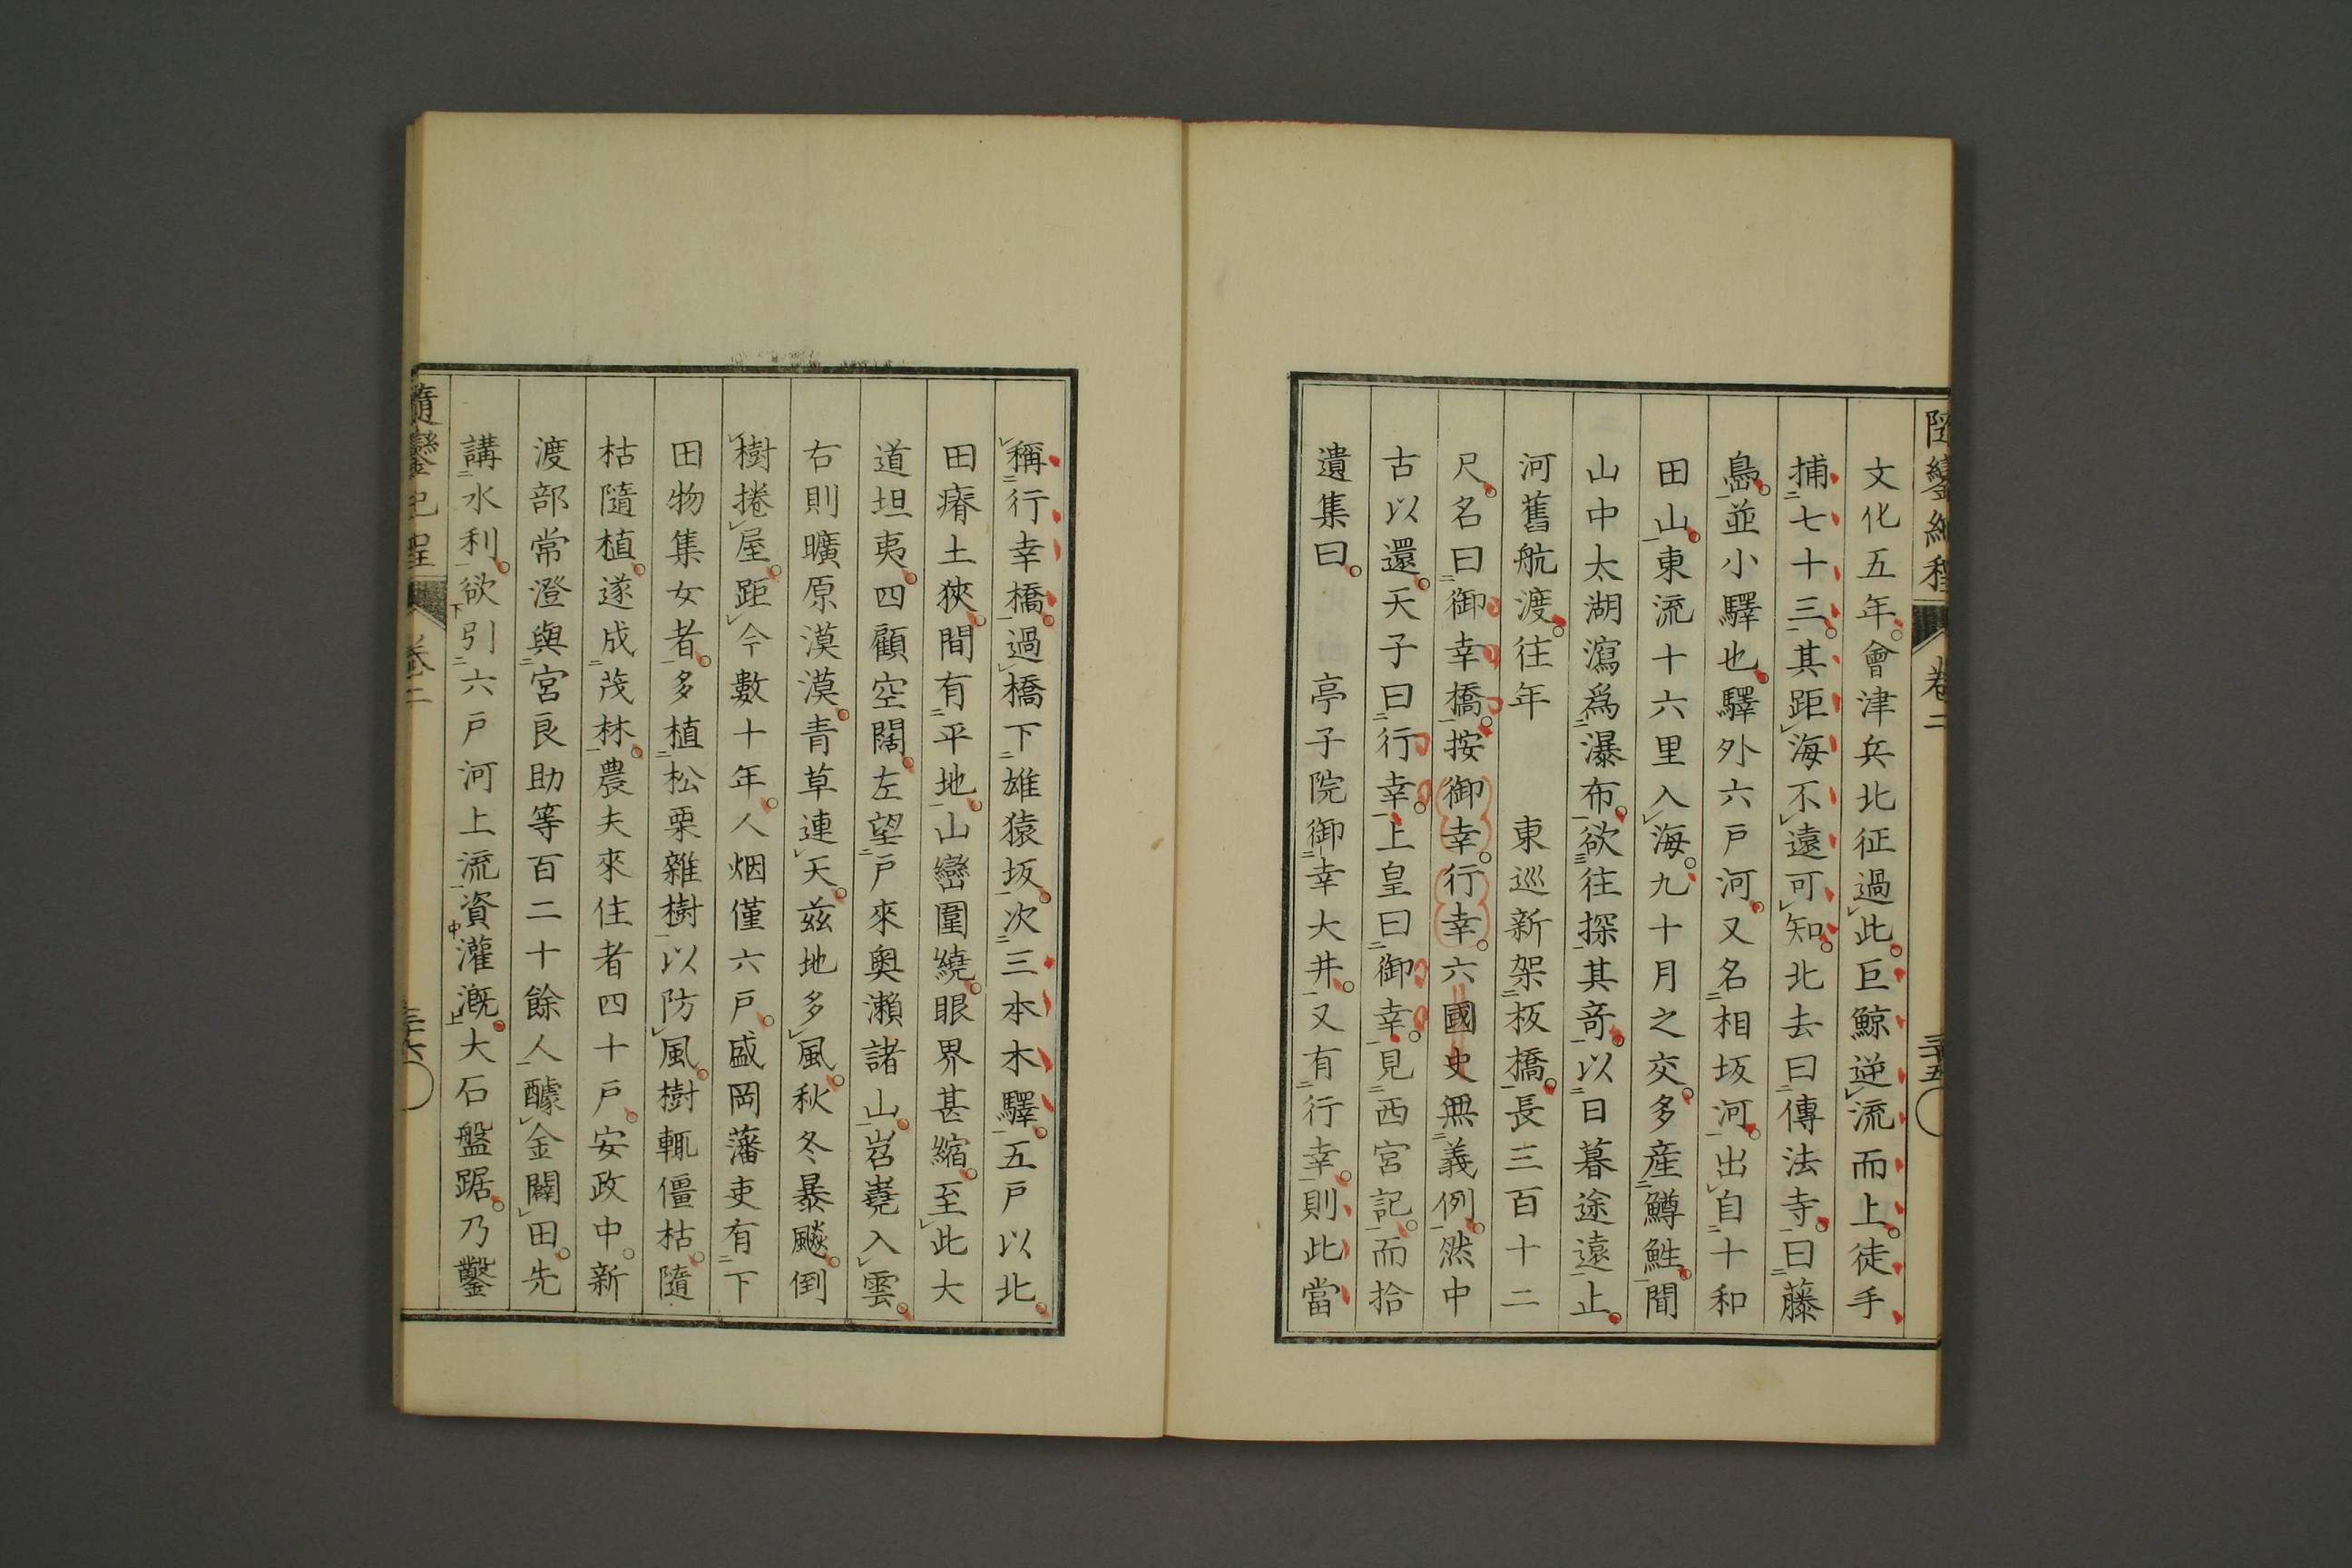 文化五年會津兵北征過此巨鯨逆流而上徒手
捕七十三其距海不遠可知北去曰傳法寺曰藤
島並小驛也驛外六戸河又名相坂河出自十和
田山東流十六里入海九十月之交多産鱒鮏間
山中太湖瀉爲瀑布欲往探其奇以日暮途遠止
河舊航渡往年　東巡新架板橋長三百十二
尺名曰御幸橋按御幸行幸六國史無義例然中
古以還天子曰行幸上皇曰御幸見西宮記而拾
遺集曰　亭子院御幸大井又有行幸則此當
卷二
三十五
稱行幸橋過橋下雄猿坂次三本木驛五戸以北
田瘠土狹間有平地山巒圍繞眼界甚縮至此大
道坦夷四顧空闊左望戸來奧瀬諸山岧嶤入雲
右則曠原漠漠青草連天茲地多風秋冬暴颷倒
樹捲屋距今數十年人烟僅六戸盛岡藩吏有下
田物集女者多植松栗雜樹以防風樹輒僵枯隨
枯隨植遂成茂林農夫來住者四十戸安政中新
渡部常澄與宮良助等百二十餘人醵金闢田先
講水利欲引六戸河上流資灌漑大石盤踞乃鑿
隨鑾紀程
卷二
三十六